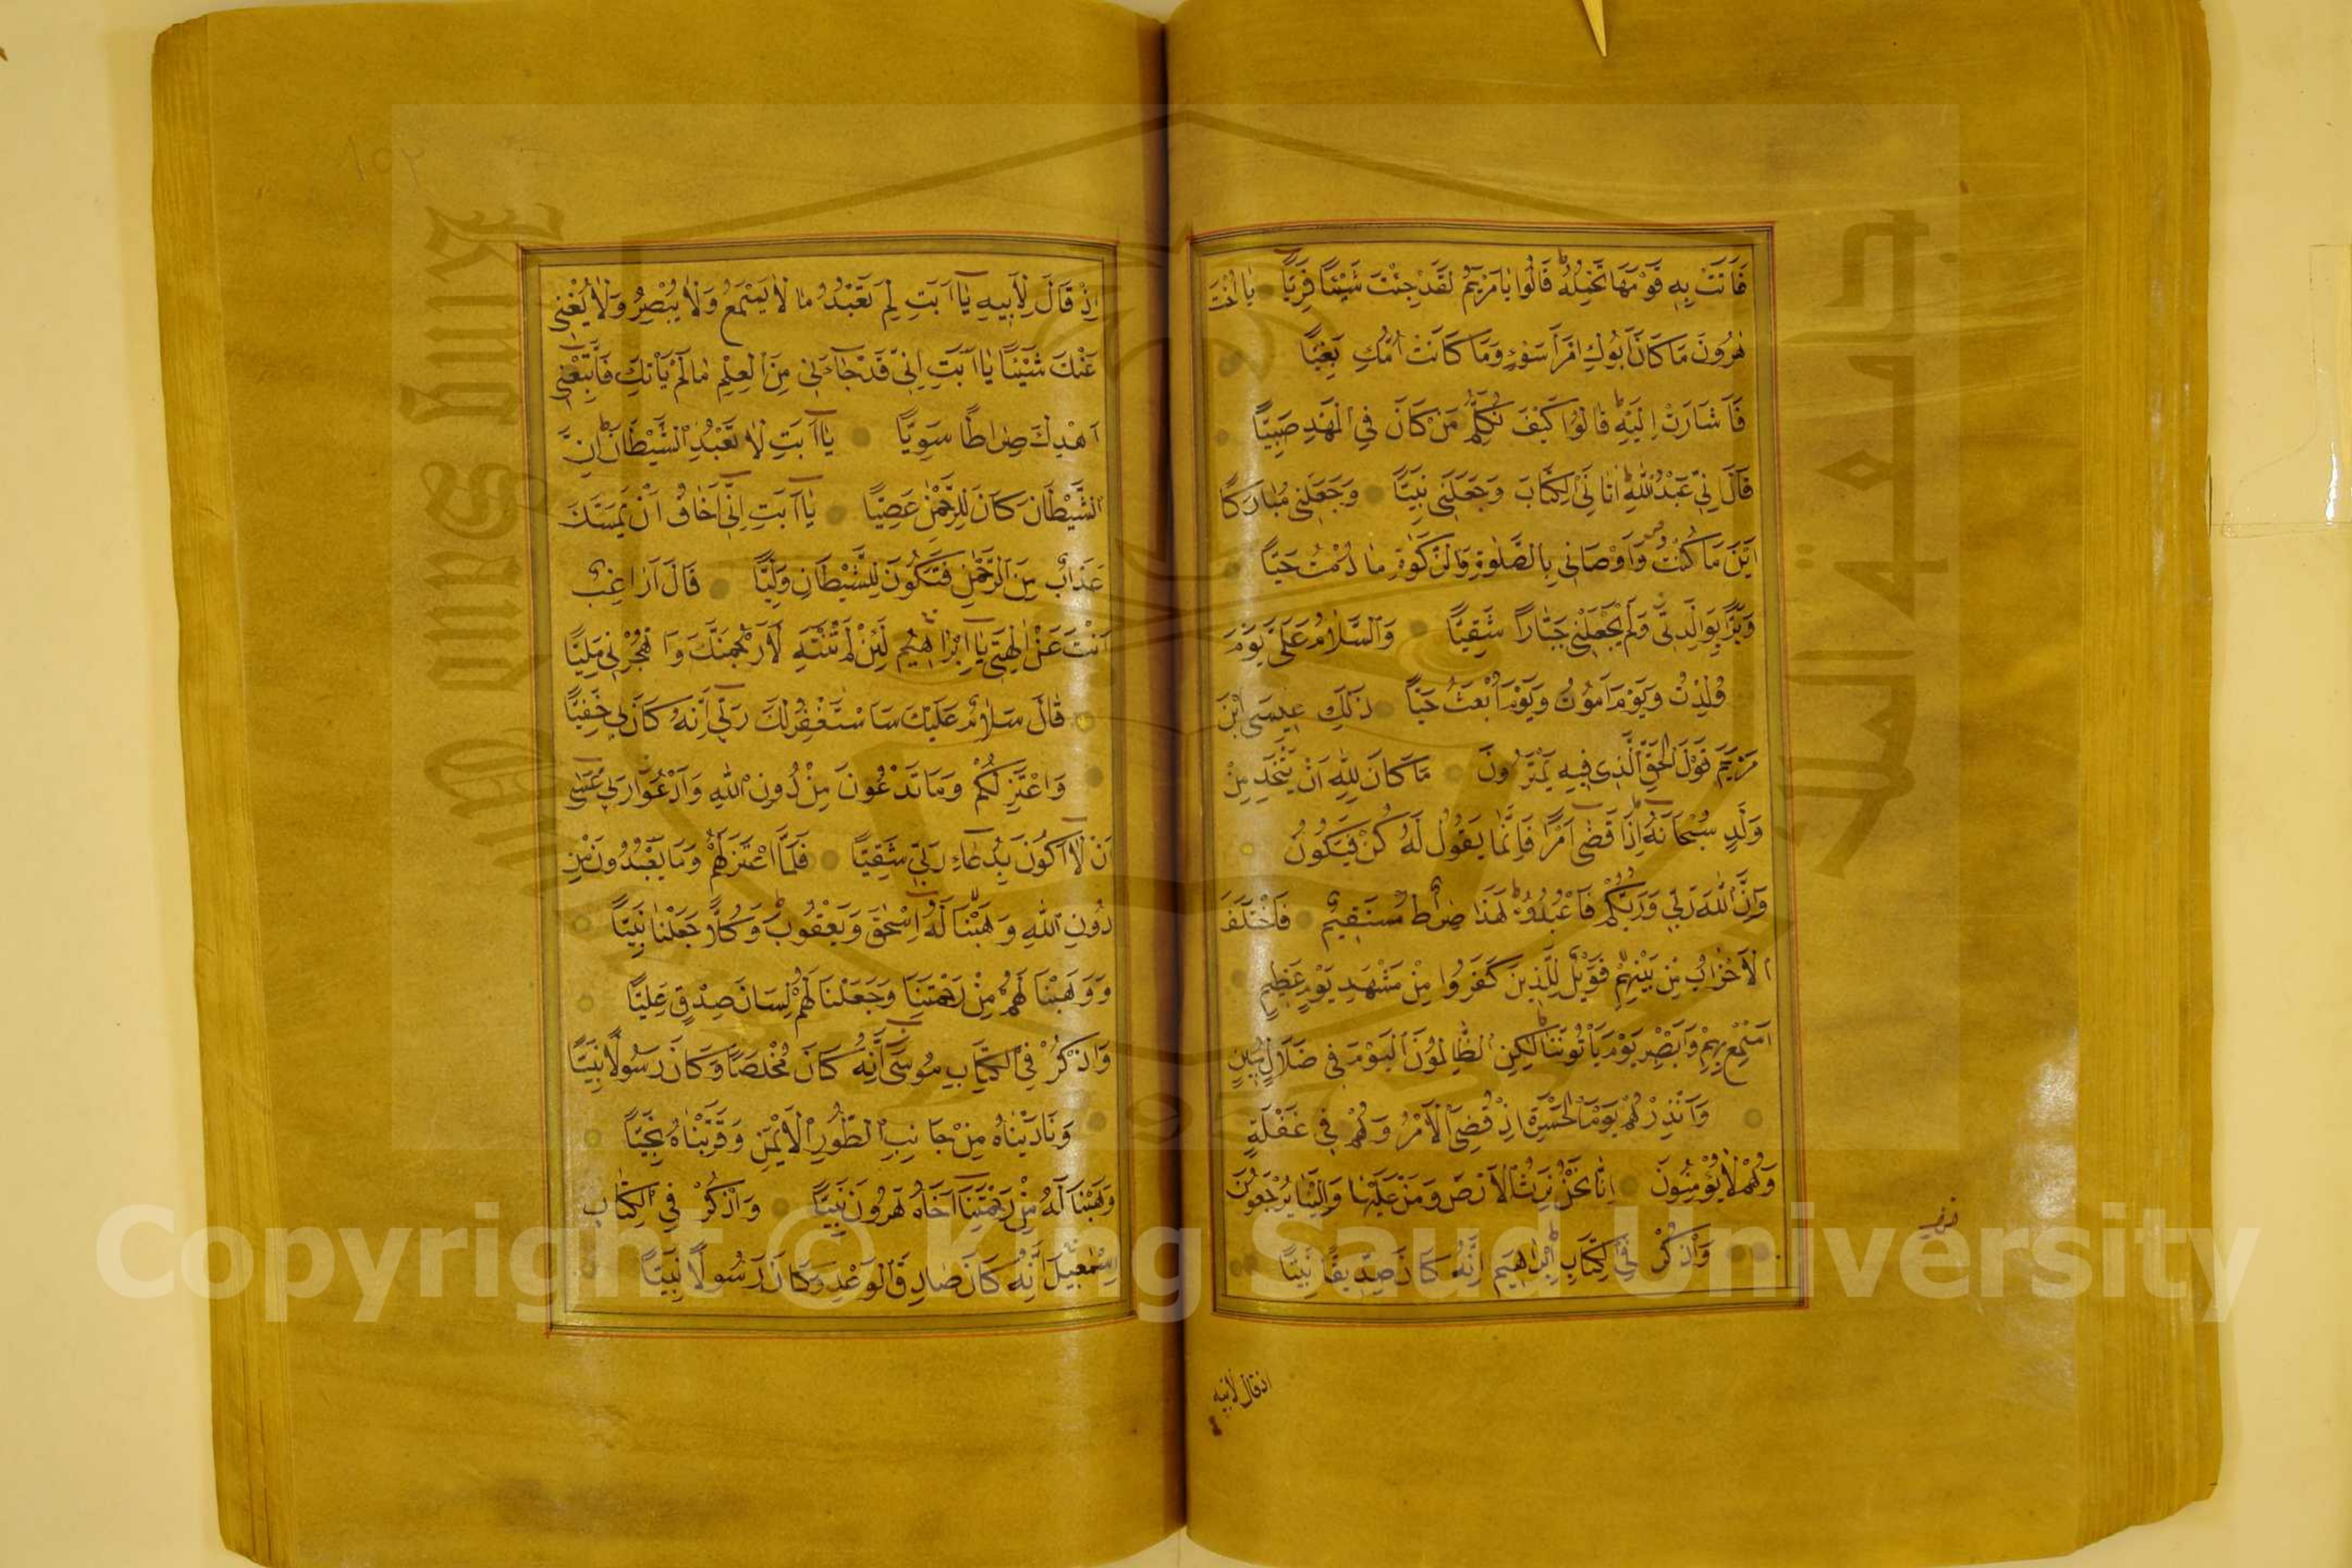 فَاَتَتْ بِهٖ قَوْمَهَا تَحْمِلُهُ قَالُوا يَا مَرْيَمُ لَقَدْ جِئْتَ شَيْئًا فَرِيًّا يَا اُخْتَ
هٰرُونَ مَا كَانَ اَبُوكِ امْرَاَ سَوْءٍ وَمَا كَانَتْ اُمُّكِ بَغِيًّا
فَاَشَارَتْ اِلَيْهِ قَالُوا كَيْفَ نُكَلِّمُ مَنْ كَانَ فِي الْمَهْدِ صَبِيًّا
قَالَ اِنّٖي عَبْدُ اللّٰهِ اٰتَانِيَ الْكِتَابَ وَجَعَلَنٖي نَبِيًّا وَجَعَلَنٖي مُبَارَكًا
اَيْنَ مَا كُنْتُ وَاَوْصَانٖي بِالصَّلٰوةِ وَالزَّكٰوةِ مَا دُمْتُ حَيًّا
وَبَرًّا بِوَالِدَتٖي وَلَمْ يَجْعَلْنٖي جَبَّارًا شَقِيًّا وَالسَّلَامُ عَلَيَّ يَوْمَ
وُلِدْتُ وَيَوْمَ اَمُوتُ وَيَوْمَ اُبْعَثُ حَيًّا ذٰلِكَ عٖيسَى ابْنُ
مَرْيَمَ قَوْلَ الْحَقِّ الَّذٖي فٖيهِ يَمْتَرُونَ مَا كَانَ لِلّٰهِ اَنْ يَتَّخِذَ مِنْ
وَلَدٍ سُبْحَانَهُ اِذَا قَضٰى اَمْرًا فَاِنَّمَا يَقُولُ لَهُ كُنْ فَيَكُونُ
وَاِنَّ اللّٰهَ رَبّٖي وَرَبُّكُمْ فَاعْبُدُوهُ هٰذَا صِرَاطٌ مُسْتَقٖيمٌ فَاخْتَلَفَ
الْاَحْزَابُ مِنْ بَيْنِهِمْ فَوَيْلٌ لِلَّذٖينَ كَفَرُوا مِنْ مَشْهَدِ يَوْمٍ عَظٖيمٍ
اَسْمِعْ بِهِمْ وَاَبْصِرْ يَوْمَ يَاْتُونَنَا لٰكِنِ الظَّالِمُونَ الْيَوْمَ فٖي ضَلَالٍ مُبٖينٍ
وَاَنْذِرْهُمْ يَوْمَ الْحَسْرَةِ اِذْ قُضِيَ الْاَمْرُ وَهُمْ فٖي غَفْلَةٍ
وَهُمْ لَا يُؤْمِنُونَ اِنَّا نَحْنُ نَرِثُ الْاَرْضَ وَمَنْ عَلَيْهَا وَاِلَيْنَا يُرْجَعُونَ
وَاذْكُرْ فِي الْكِتَابِ اِبْرٰهٖيمَ اِنَّهُ كَانَ صِدّٖيقًا نَبِيًّا
اذ قال لابيه
اِذْ قَالَ لِاَبٖيهِ يَا اَبَتِ لِمَ تَعْبُدُ مَا لَا يَسْمَعُ وَلَا يُبْصِرُ وَلَا يُغْنٖي
عَنْكَ شَيْئًا يَا اَبَتِ اِنّٖي قَدْ جَاءَنٖي مِنَ الْعِلْمِ مَا لَمْ يَاْتِكَ فَاتَّبِعْنٖي
اَهْدِكَ صِرَاطًا سَوِيًّا يَا اَبَتِ لَا تَعْبُدِ الشَّيْطَانَ اِنَّ
الشَّيْطَانَ كَانَ لِلرَّحْمٰنِ عَصِيًّا يَا اَبَتِ اِنّٖي اَخَافُ اَنْ يَمَسَّكَ
عَذَابٌ مِنَ الرَّحْمٰنِ فَتَكُونَ لِلشَّيْطَانِ وَلِيًّا قَالَ اَرَاغِبٌ
اَنْتَ عَنْ اٰلِهَتٖي يَا اِبْرَاهٖيمُ لَئِنْ لَمْ تَنْتَهِ لَاَرْجُمَنَّكَ وَاهْجُرْنٖي مَلِيًّا
قَالَ سَلَامٌ عَلَيْكَ سَاَسْتَغْفِرُ لَكَ رَبّٖي اِنَّهُ كَانَ بٖي حَفِيًّا
وَاَعْتَزِلُكُمْ وَمَا تَدْعُونَ مِنْ دُونِ اللّٰهِ وَاَدْعُوا رَبّٖي عَسٰى
اَنْ لَا اَكُونَ بِدُعَاءِ رَبّٖي شَقِيًّا فَلَمَّا اعْتَزَلَهُمْ وَمَا يَعْبُدُونَ مِنْ
دُونِ اللّٰهِ وَهَبْنَا لَهُ اِسْحٰقَ وَيَعْقُوبَ وَكُلًّا جَعَلْنَا نَبِيًّا
وَوَهَبْنَا لَهُمْ مِنْ رَحْمَتِنَا وَجَعَلْنَا لَهُمْ لِسَانَ صِدْقٍ عَلِيًّا
وَاذْكُرْ فِي الْكِتَابِ مُوسٰى اِنَّهُ كَانَ مُخْلَصًا وَكَانَ رَسُولًا نَبِيًّا
وَنَادَيْنَاهُ مِنْ جَانِبِ الطُّورِ الْاَيْمَنِ وَقَرَّبْنَاهُ نَجِيًّا
وَوَهَبْنَا لَهُ مِنْ رَحْمَتِنَا اَخَاهُ هٰرُونَ نَبِيًّا وَاذْكُرْ فِي الْكِتَابِ
اِسْمٰعٖيلَ اِنَّهُ كَانَ صَادِقَ الْوَعْدِ وَكَانَ رَسُولًا نَبِيًّا
١٥٢
King Saud University
جامعة الملك سعود
1957
Copyright © King Saud University